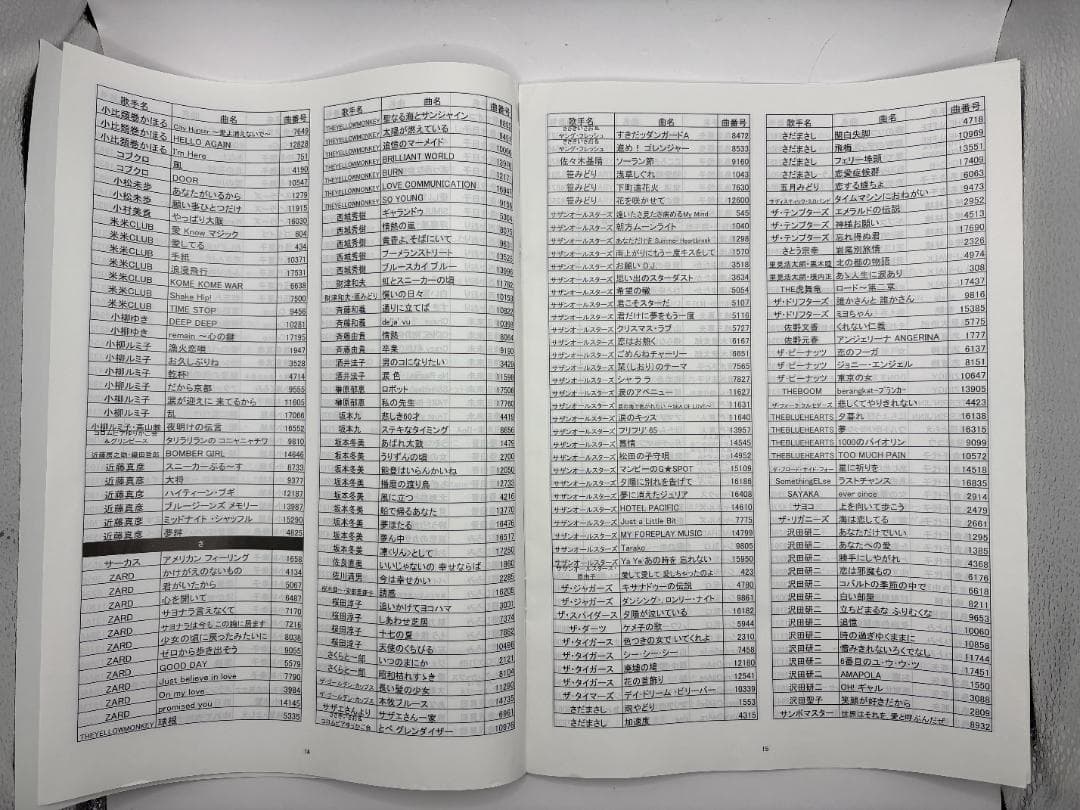 歌手名 曲名 曲番号
小比類巻かほる City Hunter ～愛よ消えないで～ 7649
小比類巻かほる HELLO AGAIN 12828
小比類巻かほる I'm Here 751
コブクロ 風 4190
コブクロ DOOR 10547
小松未歩 あなたがいるから 1279
小松未歩 願い事ひとつだけ 11915
小村美貴 やっぱり大阪 16030
米米CLUB 愛 Know マジック 604
米米CLUB 愛してる 434
米米CLUB 手紙 10371
米米CLUB 浪漫飛行 17531
米米CLUB KOME KOME WAR 6638
米米CLUB Shake Hip! 7500
米米CLUB TIME STOP 9456
小柳ゆき DEEP DEEP 10281
小柳ゆき remain ～心の鍵 17195
小柳ルミ子 漁火恋唄 1947
小柳ルミ子 お久しぶりね 3528
小柳ルミ子 乾杯! 4714
小柳ルミ子 だから京都 9555
小柳ルミ子 涙が迎えに 来てるから 11605
小柳ルミ子 乱 17066
小柳ルミ子・高山厳 夜明けの伝言 16552
コロムビアゆりかご会&グリンピース タリラリランの コニャニャチワ 9810
近藤房之助・織田哲郎 BOMBER GIRL 14646
近藤真彦 スニーカーぶる～す 8733
近藤真彦 大将 9377
近藤真彦 ハイティーン・ブギ 12187
近藤真彦 ブルージーンズ メモリー 13987
近藤真彦 ミッドナイト・シャッフル 15290
近藤真彦 夢絆 4625
さ
サーカス アメリカン フィーリング 1658
ZARD かけがえのないもの 4134
ZARD 君がいたから 5067
ZARD 心を開いて 6487
ZARD サヨナラ言えなくて 7170
ZARD サヨナラは今も この胸に居ます 7216
ZARD 少女の頃に戻ったみたいに 8038
ZARD ゼロから歩き出そう 9055
ZARD GOOD DAY 5579
ZARD Just believe in love 7790
ZARD Oh my love 3984
ZARD promised you 14145
THEYELLOWMONKEY 球根 5335
歌手名 曲名 曲番号
THEYELLOWMONKEY 聖なる海とサンシャイン
THEYELLOWMONKEY 太陽が燃えている
THEYELLOWMONKEY 追憶のマーメイド
THEYELLOWMONKEY BRILLIANT WORLD
THEYELLOWMONKEY BURN
THEYELLOWMONKEY LOVE COMMUNICATION
THEYELLOWMONKEY SO YOUNG
西城秀樹 ギャランドゥ
西城秀樹 情熱の嵐
西城秀樹 黄昏よ、そばにいて
西城秀樹 ブーメランストリート
西城秀樹 ブルースカイ ブルー
財津和夫 虹とスニーカーの頃
財津和夫・原みどり 償いの日々
斉藤和義 通りに立てば
斉藤和義 deja vu
斉藤由貴 情熱
斉藤由貴 卒業
酒井法子 男のコになりたい
酒井法子 涙色
榊原郁恵 ロボット
榊原郁恵 私の先生
坂本九 悲しき60才 4419
坂本九 ステキなタイミング
坂本冬美 あばれ太鼓 1479
坂本冬美 うりずんの頃 2700
坂本冬美 能登はいらんかいね 12050
坂本冬美 播磨の渡り鳥 12733
坂本冬美 風に立つ 4216
坂本冬美 船で帰るあなた 13770
坂本冬美 夢はたる 16476
坂本冬美 夢ん中 16517
坂本冬美 凛(りん)として 17250
佐良直美 いいじゃないの 幸せならば 1860
佐川満男 今は幸せかい 2285
誘惑 16205
桜田淳子 追いかけてヨコハマ 3031
桜田淳子 しあわせ芝居 7374
桜田淳子 十七の夏 7862
桜田淳子 天使のくちびる 10490
さくらと一郎 いつのまにか 2121
さくらと一郎 昭和枯れすゝき 8104
ザ・ゴールデン・カップス 長い髪の少女 11290
ザ・ゴールデン・カップス 本牧ブルース 14735
サザエさんより サザエさん一家 6961
とべ グレンダイザー 10976
14
歌手名 曲名 曲番号
ささきいさお&ヤング・フレッシュ すきだッダンガードA 8472
ささきいさお&ヤング・フレッシュ 進め! ゴレンジャー 8533
佐々木基晴 ソーラン節 9160
笹みどり 浅草しぐれ 1043
笹みどり 下町遠花火 7630
笹みどり 花を咲かせて 12600
サザンオールスターズ 逢いたさ見たさ病めるMy Mind 545
サザンオールスターズ 朝方ムーンライト 1040
サザンオールスターズ あなただけを Summer Heartbreak 1298
サザンオールスターズ 雨上がりにもう一度キスをして 1570
サザンオールスターズ お願いD.J. 3518
サザンオールスターズ 思い出のスターダスト 3634
サザンオールスターズ 希望の轍 5054
サザンオールスターズ 君こそスターだ 5107
サザンオールスターズ 君だけに夢をもう一度 5116
サザンオールスターズ クリスマス・ラブ 5727
サザンオールスターズ 恋はお熱く 6167
サザンオールスターズ ごめんねチャーリー 6651
サザンオールスターズ 栞(しおり)のテーマ 7565
サザンオールスターズ シャララ 7827
サザンオールスターズ 涙のアベニュー 11627
サザンオールスターズ 11631
サザンオールスターズ 涙のキッス 11640
サザンオールスターズ フリフリ'65 13957
サザンオールスターズ 慕情 14545
サザンオールスターズ 松田の子守唄 14952
サザンオールスターズ マンピーのG★SPOT 15109
サザンオールスターズ 夕陽に別れを告げて 16186
サザンオールスターズ 夢に消えたジュリア 16408
サザンオールスターズ HOTEL PACIFIC 14610
サザンオールスターズ Just a Little Bit 7775
サザンオールスターズ MY FOREPLAY MUSIC 14799
サザンオールスターズ Tarako 9805
サザンオールスターズ Ya Yaあの時を 忘れない 15950
サザンオールスターズ・原由子 愛して愛して 愛しちゃったのよ 423
ザ・ジャガーズ キサナドゥーの伝説 4780
ザ・ジャガーズ ダンシング・ロンリー・ナイト 9861
ザ・スパイダース 夕陽が泣いている 16182
ザ・ダーツ ケメ子の歌 5944
ザ・タイガース 色つきの女で いてくれよ 2310
ザ・タイガース シー・シー・シー 7458
ザ・タイガース 廃墟の鳩 12180
ザ・タイガース 花の首飾り 12541
ザ・タイマーズ デイ・ドリーム・ビリーバー 10339
さだまさし 雨やどり 1553
さだまさし 加速度 4315
歌手名 曲名 曲番号
さだまさし 関白失脚 4718
さだまさし 飛梅 10969
さだまさし フェリー埠頭 13551
さだまさし 恋愛症候群 17409
五月みどり 恋する蝶ちょ 6063
サディスティック・ミカ・バンド タイムマシンにおねがい 9473
ザ・テンプターズ エメラルドの伝説 2952
ザ・テンプターズ 神様お願い 4513
ザ・テンプターズ 忘れ得ぬ君 17690
さとう宗幸 岩尾別旅情 2326
里見浩太朗・黒木瞳 北の都の物語 4974
里見浩太朗・横内正 あゝ人生に涙あり 308
THE虎舞竜 ロード～第二章 17437
ザ・ドリフターズ 誰かさんと 誰かさん 9816
ザ・ドリフターズ ミヨちゃん 15385
佐野文香 くれない仁義 5775
佐野元春 アンジェリーナ ANGERINA 1777
ザ・ピーナッツ 恋のフーガ 6137
ザ・ピーナッツ ジョニー・エンジェル 8151
ザ・ピーナッツ 東京の女 10647
THEBOOM berangkat-ブランカ- 13905
ザ・フォーク・クルセダーズ 悲しくてやりきれない 4423
THEBLUEHEARTS 夕暮れ 16138
THEBLUEHEARTS 夢 16315
THEBLUEHEARTS 1000のバイオリン 9099
THEBLUEHEARTS TOO MUCH PAIN 10572
ザ・ブロード・サイド・フォー 星に祈りを 14518
SomethingELse ラストチャンス 16835
SAYAKA ever since 2914
サヨコ 上を向いて歩こう 2479
ザ・リガニーズ 海は恋してる 2661
沢田研二 あなただけでいい 1295
沢田研二 あなたへの愛 1385
沢田研二 勝手にしやがれ 4368
沢田研二 恋は邪魔もの 6176
沢田研二 コバルトの季節の中で 6618
沢田研二 白い部屋 8211
沢田研二 立ちどまるな ふりむくな 9653
沢田研二 追憶 10060
沢田研二 時の過ぎゆくままに 10858
沢田研二 憎みきれないろくでなし 11744
沢田研二 6番目のユ・ウ・ウ・ツ 17451
沢田研二 AMAPOLA 1550
沢田研二 OH!ギャル 3088
沢田聖子 笑顔が好きだから 2809
サンボマスター 世界はそれを 愛と呼ぶんだぜ 8932
15